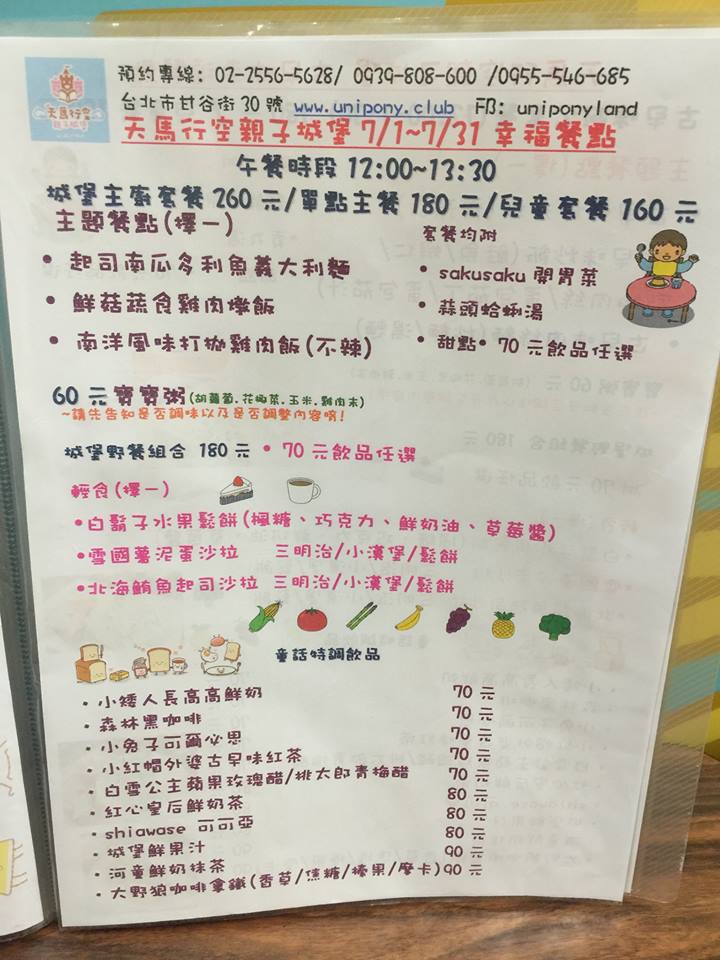 天馬行空
親子城堡
預約專線: 02-2556-5628/ 0939-808-600 /0955-546-685
台北市甘谷街 30 號 www.unipony.club FB: uniponyland
天馬行空親子城堡 7/1~7/31 幸福餐點
午餐時段 12:00~13:30
城堡主廚套餐 260 元/單點主餐 180 元/兒童套餐 160 元
主題餐點(擇一)
• 起司南瓜多利魚義大利麵
• 鮮菇蔬食雞肉燉飯
• 南洋風味打拋雞肉飯(不辣)
套餐均附
• sakusaku 開胃菜
• 蒜頭蛤蜊湯
• 甜點• 70 元飲品任選
60 元寶寶粥(胡蘿蔔.花椰菜.玉米.雞肉末)
~請先告知是否調味以及是否調整內容唷!
城堡野餐組合 180 元 • 70 元飲品任選
輕食(擇一)
•白鬍子水果鬆餅(楓糖、巧克力、鮮奶油、草莓醬)
•雪國薯泥蛋沙拉 三明治/小漢堡/鬆餅
•北海鮪魚起司沙拉 三明治/小漢堡/鬆餅
童話特調飲品
• 小矮人長高高鮮奶 70 元
• 森林黑咖啡 70 元
• 小兔子可爾必思 70 元
• 小紅帽外婆古早味紅茶 70 元
• 白雪公主蘋果玫瑰醋/桃太郎青梅醋 70 元
• 紅心皇后鮮奶茶 80 元
• shiawase 可可亞 80 元
• 城堡鮮果汁 80 元
• 河童鮮奶抹茶 90 元
• 大野狼咖啡拿鐵(香草/焦糖/榛果/摩卡)90 元